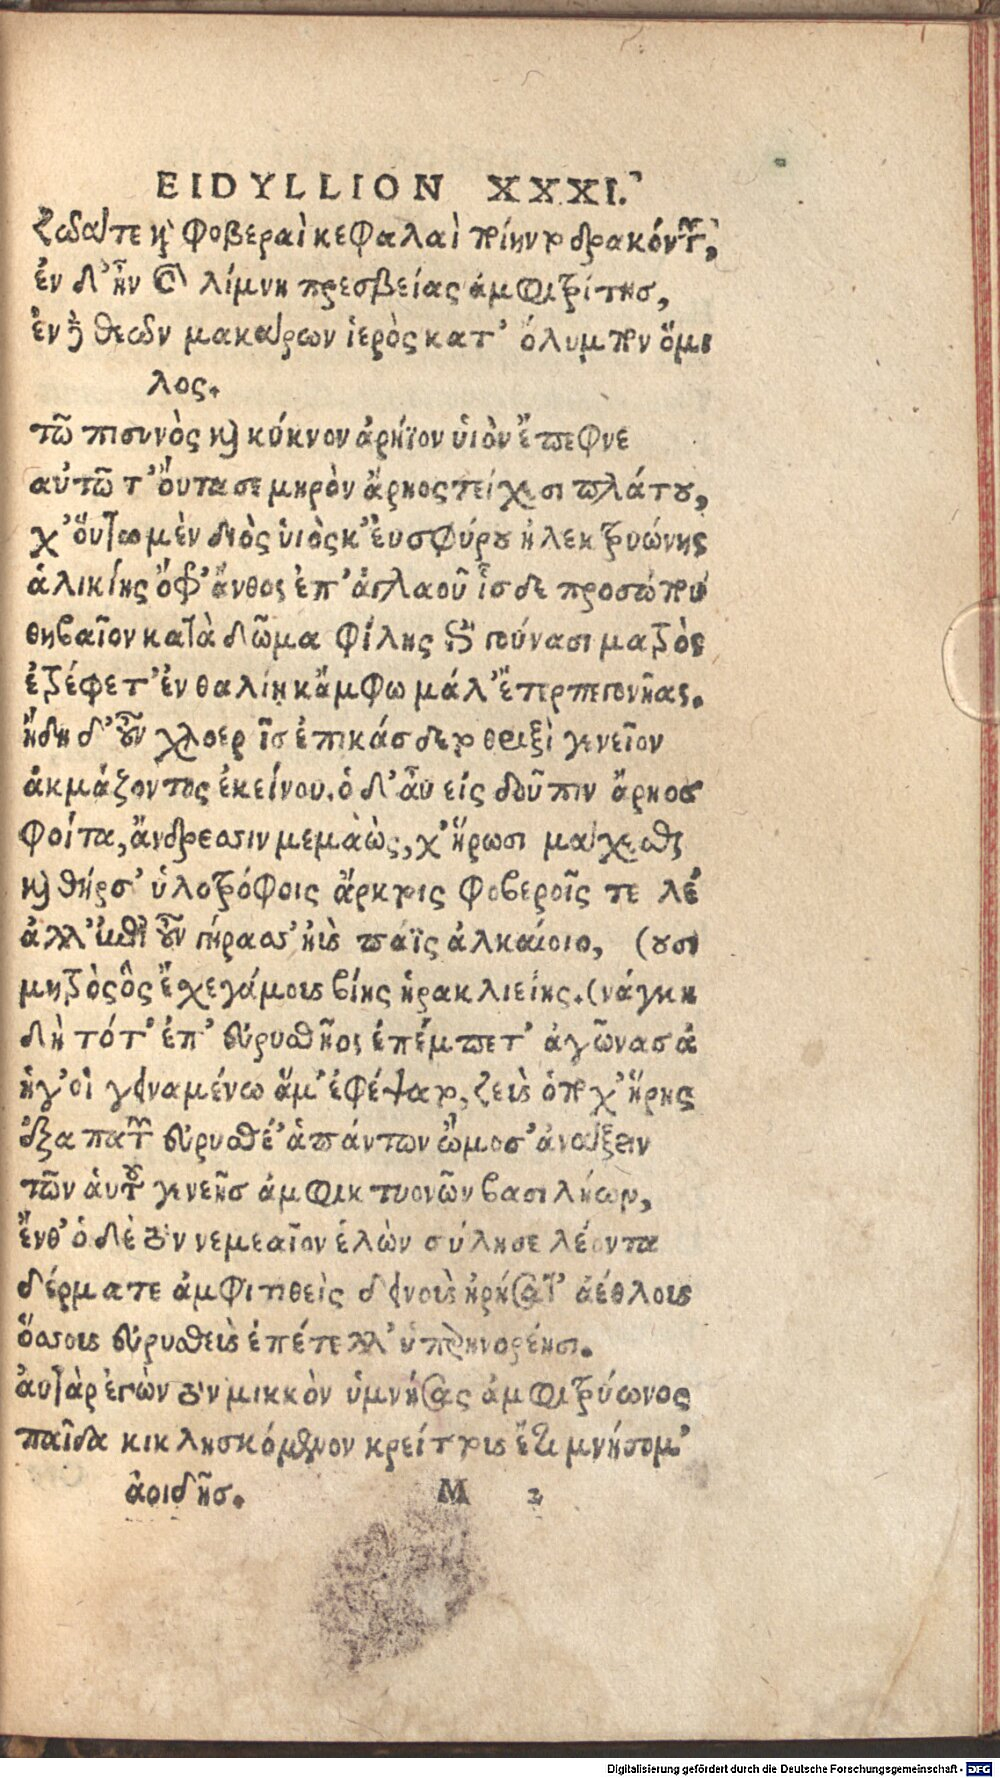 EIDYLLION XXXI.
ζωᾶτε καὶ φοβεραὶ κεφαλαὶ ποίην δρακόντων,
ἐν δ' ἦν λίμνη πρεσβείας ἀμφιτρίτησ,
ἐν θεῶν μακάρων ἱερὸς κατ' ὄλυμπον ὅμι
λος.
τῶ πισυνὸς καὶ κύκνον ἀρήϊον ὑιὸν ἔπεφνε
αὐτῶ τ' ὄυτασε μηρὸν ἄρηος τείχεσι πλάτου,
χ' οὕτω μὲν διὸς ὑιὸς κ' ἐυσφύρου ἠλεκτρυώνης
ἁλικίης ὄφρ' ἄνθος ἐπ' ἀγλαοῦ ἷσδε προσώπου
θηβαῖον κατὰ δῶμα φίλης γούνασι ματρὸς
ἐτρέφετ' ἐν θαλίη κἄμφω μάλ' ἔτερπε γονῆας.
ἤδη δ' οὖν χλοερ ἷσ ἐπικάσδεν θριξὶ γενεῖον
ἀκμάζοντος ἐκείνου. ὁ δ' αὖ εἰς δοῦπον ἄρηοσ
φοίτα, ἄνδρεσσιν μεμαὼς, χ' ἥρωσι μάχεσθαι
καὶ θήρσ' ὑλοτρόφοις ἄρκτοις φοβεροῖς τε λέ
ἀλλ' οὖν γήραοσ' ἧς πάϊς ἀλκαίοιο, (ουσι
μητρὸς ὃς ἔχε γάμους βίης ἡρακλιείης. (νάγκη
δὴ τότ' ἐπ' εὐρυσθῆος ἐπέμπετ' ἀγῶνασ ἀ
ἥγ' οἱ γειναμένω ἅμ' ἐφέψατο, ζεὺς ὁπ χ' ἥρης
ἐξαπατῶν εὐρυσθέ' ἁπάντων ὤμοσ' ἀνάξειν
τῶν ἀυτοῦ γενεῆσ ἀμφικτυονῶν βασιλήων,
ἔνθ' ὁ δὲ τὸν νεμεαῖον ἑλὼν σύλησε λέοντα
δέρμα τε ἀμφιτιθεὶς δεινοὺς ἠρήσατ' ἀέθλους
ὅσσους εὐρυσθεὺς ἐπέτελλ' ὑπερηνορέησι.
αὐτὰρ ἐγὼν τὸν μικκὸν ὑμνήσας ἀμφιτρύωνος
παῖδα κικλησκόμενον κρείττους ἔτι μνήσομ'
ἀοιδῆσ. M 2
Digitalisierung gefördert durch die Deutsche Forschungsgemeinschaft - DFG